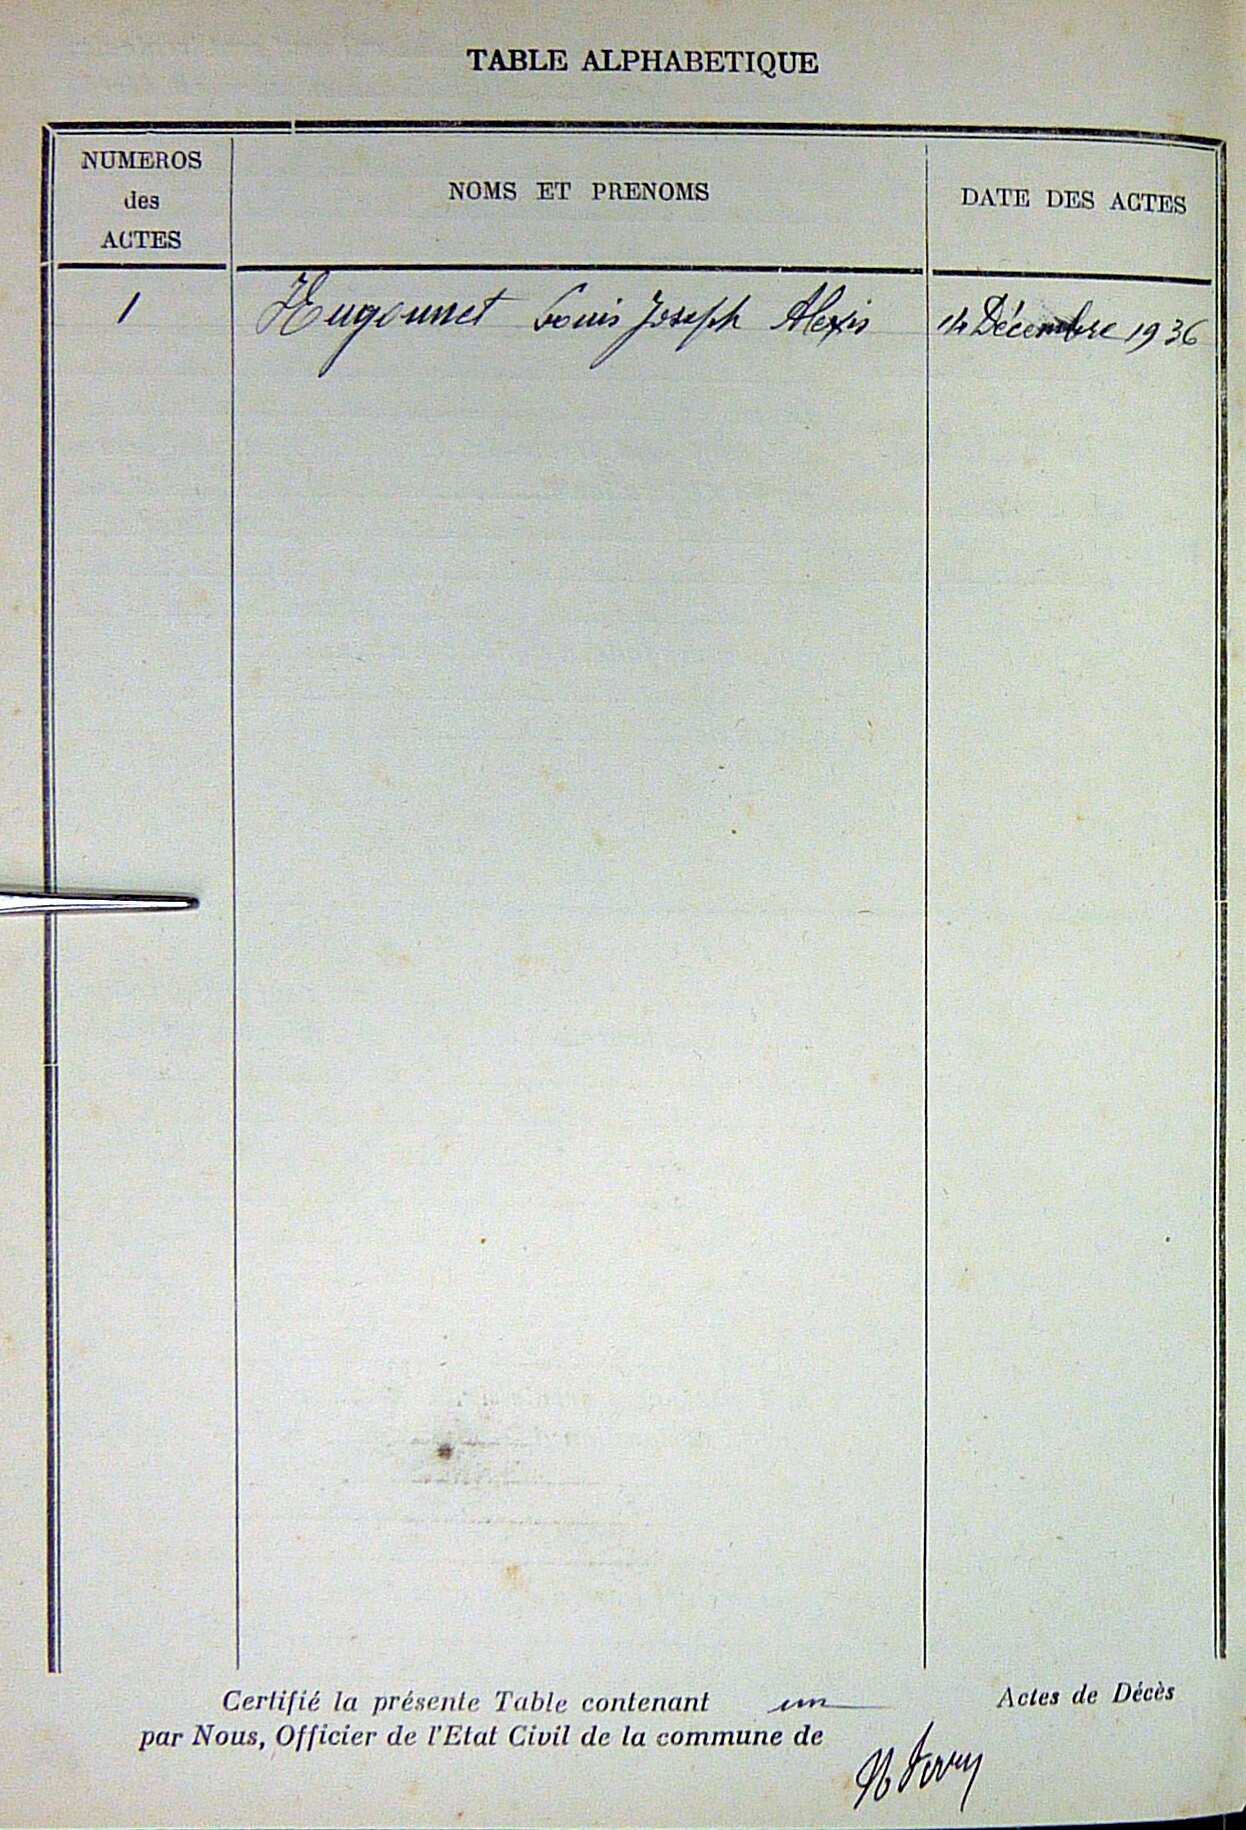 TABLE ALPHABETIQUE
NUMEROS
des
ACTES
NOMS ET PRENOMS
DATE DES ACTES
1 Hugounet Louis Joseph Alexis 14 Décembre 1936
Certifié la présente Table contenant un Actes de Décès
par Nous, Officier de l'Etat Civil de la commune de